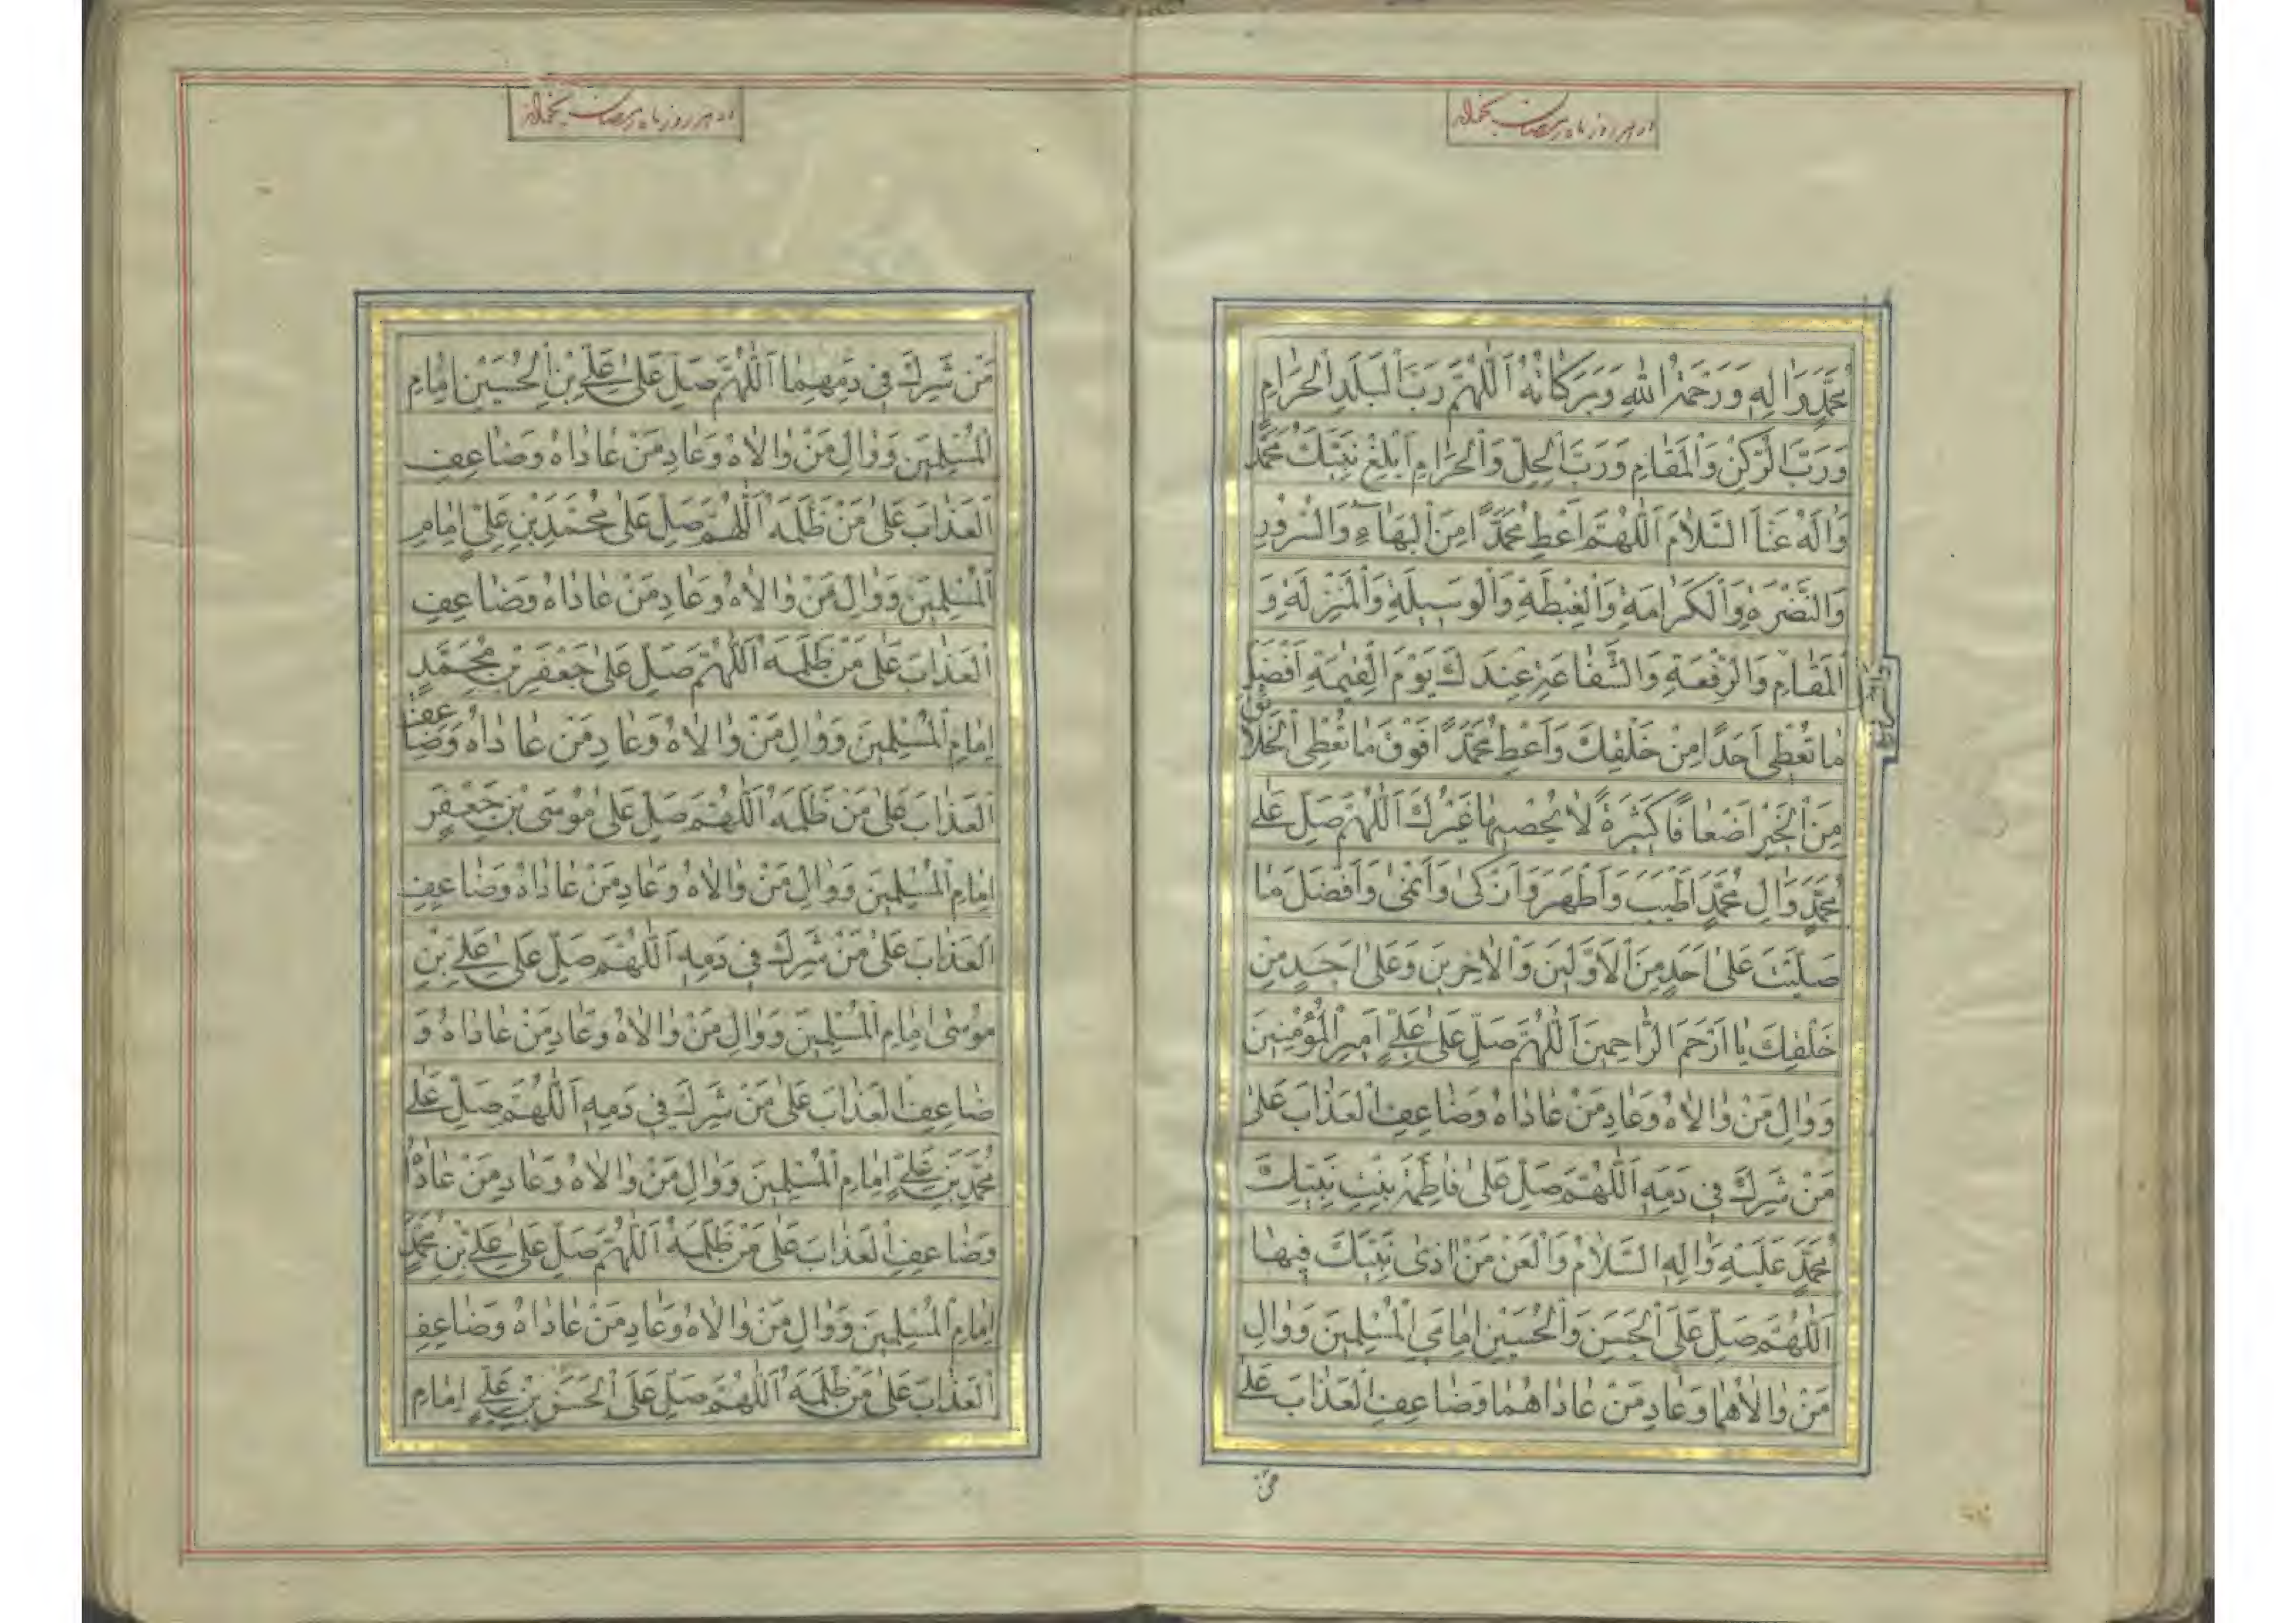 در هر روز ماه رمضان بخواند
مُحَمَّدٍ وَاٰلِهِ وَرَحْمَةُ اللهِ وَبَرَكَاتُهُ اَللّٰهُمَّ رَبَّ الْبَلَدِ الْحَرَامِ
وَرَبَّ الرُّكْنِ وَالْمَقَامِ وَرَبَّ الْحِلِّ وَالْحَرَامِ اَبْلِغْ نَبِيَّكَ مُحَمَّدًا
وَاٰلَهُ عَنَّا السَّلَامَ اَللّٰهُمَّ اَعْطِ مُحَمَّدًا مِنَ الْبَهَاءِ وَالسُّرُورِ
وَالنَّضْرَةِ وَالْكَرَامَةِ وَالْغِبْطَةِ وَالْوَسِيلَةِ وَالْمَنْزِلَةِ وَ
الْمَقَامِ وَالرِّفْعَةِ وَالشَّفَاعَةِ عِنْدَكَ يَوْمَ الْقِيٰمَةِ اَفْضَلَ
مَا تُعْطِي اَحَدًا مِنْ خَلْقِكَ وَاَعْطِ مُحَمَّدًا فَوْقَ مَا تُعْطِي الْخَلَائِقَ
مِنَ الْخَيْرِ اَضْعَافًا كَثِيرَةً لَا يُحْصِيهَا غَيْرُكَ اَللّٰهُمَّ صَلِّ عَلٰى
مُحَمَّدٍ وَاٰلِ مُحَمَّدٍ اَطْيَبَ وَاَطْهَرَ وَاَزْكٰى وَاَنْمٰى وَاَفْضَلَ مَا
صَلَّيْتَ عَلٰى اَحَدٍ مِنَ الْاَوَّلِينَ وَالْاٰخِرِينَ وَعَلٰى اَحَدٍ مِنْ
خَلْقِكَ يَا اَرْحَمَ الرَّاحِمِينَ اَللّٰهُمَّ صَلِّ عَلٰى عَلِيٍّ اَمِيرِ الْمُؤْمِنِينَ
وَوَالِ مَنْ وَالَاهُ وَعَادِ مَنْ عَادَاهُ وَضَاعِفِ الْعَذَابَ عَلٰى
مَنْ شَرِكَ فِي دَمِهِ اَللّٰهُمَّ صَلِّ عَلٰى فَاطِمَةَ بِنْتِ نَبِيِّكَ
مُحَمَّدٍ عَلَيْهِ وَاٰلِهِ السَّلَامُ وَالْعَنْ مَنْ اٰذٰى نَبِيَّكَ فِيهَا
اَللّٰهُمَّ صَلِّ عَلَى الْحَسَنِ وَالْحُسَيْنِ اِمَامَيِ الْمُسْلِمِينَ وَوَالِ
مَنْ وَالَاهُمَا وَعَادِ مَنْ عَادَاهُمَا وَضَاعِفِ الْعَذَابَ عَلٰى
مَنْ
در هر روز ماه رمضان بخواند
مَنْ شَرِكَ فِي دَمِهِمَا اَللّٰهُمَّ صَلِّ عَلٰى عَلِيِّ بْنِ الْحُسَيْنِ اِمَامِ
الْمُسْلِمِينَ وَوَالِ مَنْ وَالَاهُ وَعَادِ مَنْ عَادَاهُ وَضَاعِفِ
الْعَذَابَ عَلٰى مَنْ ظَلَمَهُ اَللّٰهُمَّ صَلِّ عَلٰى مُحَمَّدِ بْنِ عَلِيٍّ اِمَامِ
الْمُسْلِمِينَ وَوَالِ مَنْ وَالَاهُ وَعَادِ مَنْ عَادَاهُ وَضَاعِفِ
الْعَذَابَ عَلٰى مَنْ ظَلَمَهُ اَللّٰهُمَّ صَلِّ عَلٰى جَعْفَرِ بْنِ مُحَمَّدٍ
اِمَامِ الْمُسْلِمِينَ وَوَالِ مَنْ وَالَاهُ وَعَادِ مَنْ عَادَاهُ وَضَاعِفِ
الْعَذَابَ عَلٰى مَنْ ظَلَمَهُ اَللّٰهُمَّ صَلِّ عَلٰى مُوسَى بْنِ جَعْفَرٍ
اِمَامِ الْمُسْلِمِينَ وَوَالِ مَنْ وَالَاهُ وَعَادِ مَنْ عَادَاهُ وَضَاعِفِ
الْعَذَابَ عَلٰى مَنْ شَرِكَ فِي دَمِهِ اَللّٰهُمَّ صَلِّ عَلٰى عَلِيِّ بْنِ
مُوسٰى اِمَامِ الْمُسْلِمِينَ وَوَالِ مَنْ وَالَاهُ وَعَادِ مَنْ عَادَاهُ وَ
ضَاعِفِ الْعَذَابَ عَلٰى مَنْ شَرِكَ فِي دَمِهِ اَللّٰهُمَّ صَلِّ عَلٰى
مُحَمَّدِ بْنِ عَلِيٍّ اِمَامِ الْمُسْلِمِينَ وَوَالِ مَنْ وَالَاهُ وَعَادِ مَنْ عَادَاهُ
وَضَاعِفِ الْعَذَابَ عَلٰى مَنْ ظَلَمَهُ اَللّٰهُمَّ صَلِّ عَلٰى عَلِيِّ بْنِ مُحَمَّدٍ
اِمَامِ الْمُسْلِمِينَ وَوَالِ مَنْ وَالَاهُ وَعَادِ مَنْ عَادَاهُ وَضَاعِفِ
الْعَذَابَ عَلٰى مَنْ ظَلَمَهُ اَللّٰهُمَّ صَلِّ عَلَى الْحَسَنِ بْنِ عَلِيٍّ اِمَامِ